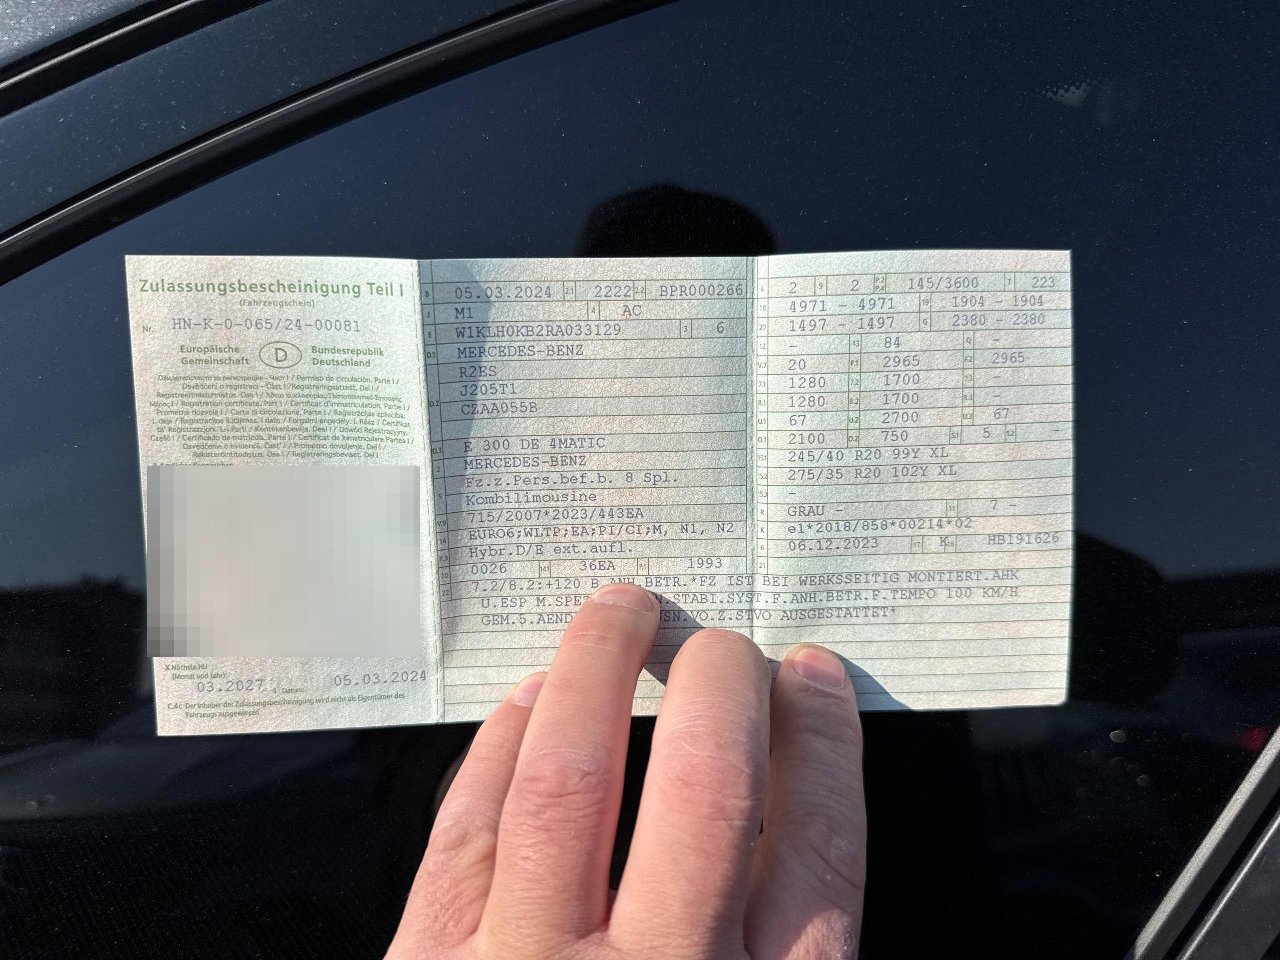 Zulassungsbescheinigung Teil I
(Fahrzeugschein)
Nr. HN-K-0-065/24-00081
Europäische Gemeinschaft
D
Bundesrepublik Deutschland
X Nächste HU
(Monat und Jahr)
03.2027
Datum
05.03.2024
C.4c Der Inhaber der Zulassungsbescheinigung wird nicht als Eigentümer des
Fahrzeugs ausgewiesen.
B 05.03.2024 2.1 2222 BPR000266
J M1 4 AC
E W1KLH0KB2RA033129 3 6
D.1 MERCEDES-BENZ
R2ES
D.2 J205T1
CZAA055B
D.3 E 300 DE 4MATIC
2 MERCEDES-BENZ
5 Fz.z.Pers.bef.b. 8 Spl.
Kombilimousine
V.9 715/2007*2023/443EA
14 EURO6;WLTP;EA;PI/CI;M, N1, N2
Hybr.D/E ext.aufl.
10 0026 36EA 1993
22 7.2/8.2:+120 B.ANH.BETR.*FZ IST BEI WERKSSEITIG MONTIERT.AHK
U.ESP M.SPEZ N.STABI.SYST.F.ANH.BETR.F.TEMPO 100 KM/H
GEM.5.AEND SN.VO.Z.STVO AUSGESTATTET*
L 2 9 2 P.2 P.4 145/3600 T 223
18 4971 - 4971 19 1904 - 1904
20 1497 - 1497 G 2380 - 2380
12 - 13 84 Q -
V.7 20 F.1 2965 F.2 2965
7.1 1280 7.2 1700 7.3 -
8.1 1280 8.2 1700 8.3 -
U.1 67 U.2 2700 U.3 67
O.1 2100 O.2 750 S.1 5 S.2 -
15.1 245/40 R20 99Y XL
15.2 275/35 R20 102Y XL
15.3 -
R GRAU - 11 7 -
K e1*2018/858*00214*02
6 06.12.2023 17 K 16 HB191626
21